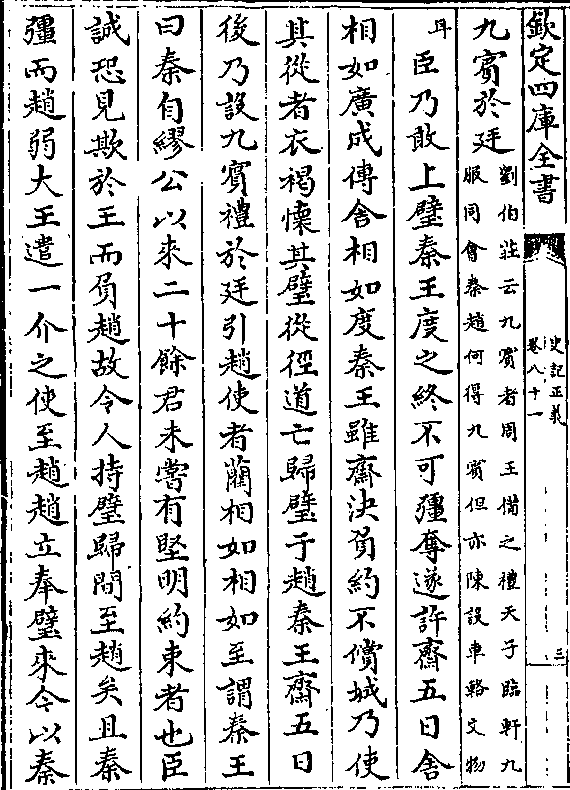 欽定四庫全書
史記正義
卷八十一
三
九賓於廷
劉伯莊云九賓者周王備之禮天子臨軒九
服同會秦趙何得九賓但亦陳設車輅文物
耳
臣乃敢上璧秦王度之終不可彊奪遂許齋五日舍
相如廣成傳舍相如度秦王雖齋決負約不償城乃使
其從者衣褐懷其璧從徑道亡歸璧于趙秦王齋五日
後乃設九賓禮於廷引趙使者藺相如相如至謂秦王
曰秦自繆公以來二十餘君未嘗有堅明約束者也臣
誠恐見欺於王而負趙故令人持璧歸間至趙矣且秦
彊而趙弱大王遣一介之使至趙趙立奉璧來今以秦